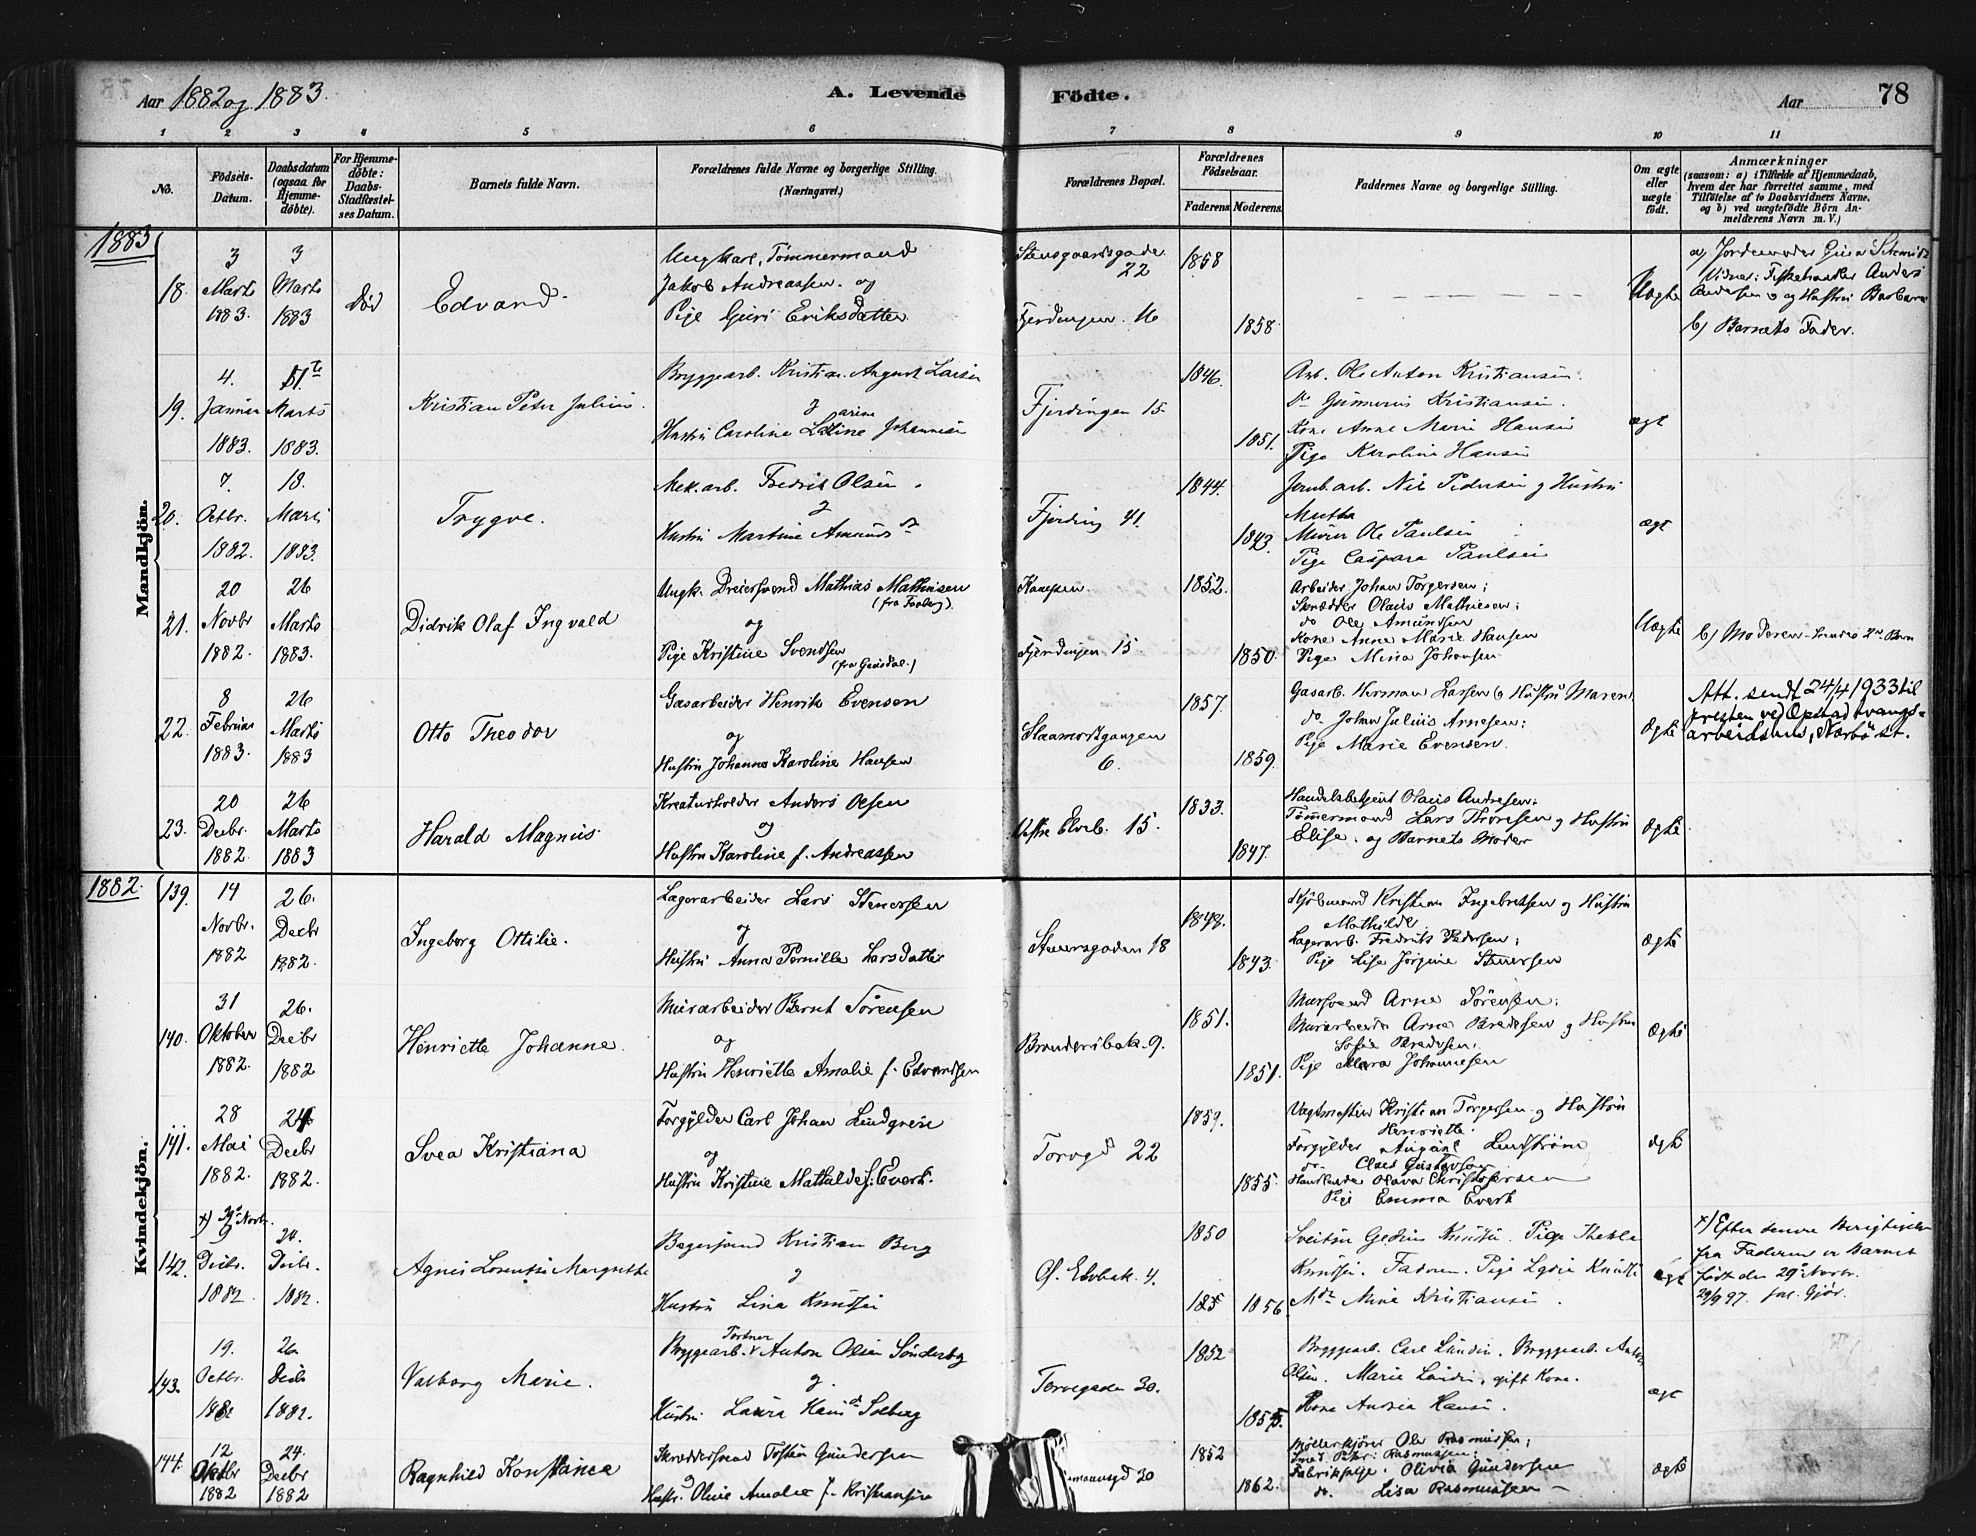 Aar 1882 og 1883.
A. Levende Födte.
Aar 78
1 2 3 4 5 6 7 8 9 10 11
No.
Födsels-Datum.
Daabsdatum (ogsaa for Hjemme-döbte).
For Hjemme-döbte: Daabs-Stadfæstel-ses Datum.
Barnets fulde Navn.
Forældrenes fulde Navne og borgerlige Stilling. (Næringsvei.)
Forældrenes Bopæl.
Forældrenes Födselsaar.
Faderens Moderens
Faddernes Navne og borgerlige Stilling.
Om ægte eller uægte födt.
Anmærkninger (saasom: a) i Tilfælde af Hjemmedaab, hvem der har forrettet samme, med Tilföielse af to Daabsvidners Navne, og b) ved uægtefödte Börn An-melderens Navn m. V.)
Mandkjön.
1883
18. 3 Marts 1883. 3 Marts 1883 Död
Edvard
Ungkarl, Tömmermand
Jakob Andreassen og
Pige Guri Eriksdatter
Stensgaardsgade 22
Fjerdingen 16
1858
1858
Uægte
a) Jordemoder
Vidner: Fiskehandler Anders
Andersen og Hustru Barbara
b) Barnets Fader.
19. 4. Januar 1883. Marts 1883.
Kristian Peter Julius.
Bryggearb. Kristian August Larsen
Hustru Caroline Johannesen
Fjerdingen 15
1846
1851.
Arb. Ole Anton Kristiansen.
Kristiansen.
Kone Anne Marie Hansen
Pige Karoline Hansen
ægt
20. 7. Octbr. 1882. 18. Marts 1883.
Trygve.
Mek. arb. Fredrik Olsen
Hustru Martine
Fjerding 41.
1844.
1843.
Pedersen og Hustru
Murer Ole Paulsen
Pige Caspara Paulsen
ægt
21. 20 Novbr 1882. 26 Marts 1883.
Didrik Olaf Ingvald
Ungk. Dreiersvend Mathias Mathisen
(fra Faaberg).
og
Pige Kristine Svendsen
Fjerdingen 15
1852.
1850.
Arbeider Johan Torgersen;
Skrædder Olaus Mathiesen;
do Ole Amundsen
Kone Anne Marie Hansen
Pige Mina Johansen
Uægte
b) Moderen
22. 8 Februar 1883. 26 Marts 1883
Otto Theodor
Gasarbeider Henrik Evensen
og
Hustru Johanne Karoline Hansen
6.
1857.
1859.
Gasarb. Herman Larsen og Hustru Maren
do. Johan Julius Arnesen;
Pige Marie Evensen.
Ægte
Att. sendt 24/4 1933 til
presten ved Opstad tvangs-
arbeidshus, Nærbö st.
23. 20 Decbr. 1882. 26 Marts 1883
Harald Magnus.
Kreaturholder Anders Olsen
og
Hustru Karoline f. Andreassen
Vestre Elveb. 15.
1833.
1847.
Handelsbetjent Olaus Andresen;
Tömmermand Lars Thoresen og Hustru
Elise. og Barnets Moder
Ægte
Kvindekjön.
1882.
139. 14 Novbr. 1882 26. Decbr 1882.
Ingeborg Ottilie.
Lagerarbeider Lars Stenersen
og
Hustru Anna Pernille Larsdatter
Stenersgaden 18
1848.
1843.
Kristian Ingebretsen og Hustru
Mathilde
Lagerarb. Fredrik Pedersen;
Pige Lise Jörgine Stenersen
Ægte
140. 31 Oktober 1882. 26. Decbr 1882
Henriette Johanne.
Murarbeider Bernt Sörensen
og
Hustru Henriette Amalie f. Edvardsen
9.
1851.
1851.
Mursvend Arne Sörensen;
Murarbeider Arne Bredesen og Hustru
Sofie Bredesen;
Pige Johannesen
Ægte
141. 28 Mai 1882. 24 Decbr 1882.
Svea Kristiana
Forgylder Carl Johan Lindgren
og
Hustru Kristine Mathilde f. Evert.
Torvgd 22
1859.
1855.
Vagtmester Kristian Torgersen og Hustru
Henriette.
Forgylder August Lindström
do. Claes Gustavsen
Handlende Olava Christofersen
Pige Emma Evert
ægte
142. x) 29de Novb. 9 Decbr. 1882 Decbr. 1882.
Agnes Lorentze Margrethe
Bagersvend Kristian Berg
Hustru Lina Knudsen
Ø. Elvbak. 4.
1850
185 1856
Knudsen. Pige Thekla
Knudsen. Faderen. Pige Lydia Knudsen
Kristiansen.
ægt
x) Efter senere Berigtigelse
fra Faderen er Barnet
födt den 29de Novbr.
29/9 97.
143. 19. Octbr. 1882 26 Decbr 1882.
Valborg Marie.
Bryggearb. Anton Olsen Sönderby
Hustru Laura Solberg
Torvegaden 30.
1852
1855.
Bryggearb. Carl Lundin. Bryggearb. Anton
Olsen. Marie Lundin, gift Kone.
Kone
ægt
144. 12 Oktbr 1882 24. Decbr 1882
Ragnhild Konstance
Skræddersvend Gundersen
Hustr. Oline Amalie f. Kristiansen
30
1852
1862.
Möllerkjörer Ole Rasmussen;
Smed Peter Rasmussen;
Fabrikpige Olivia Gundersen
do. Lisa Rasmussen
ægte